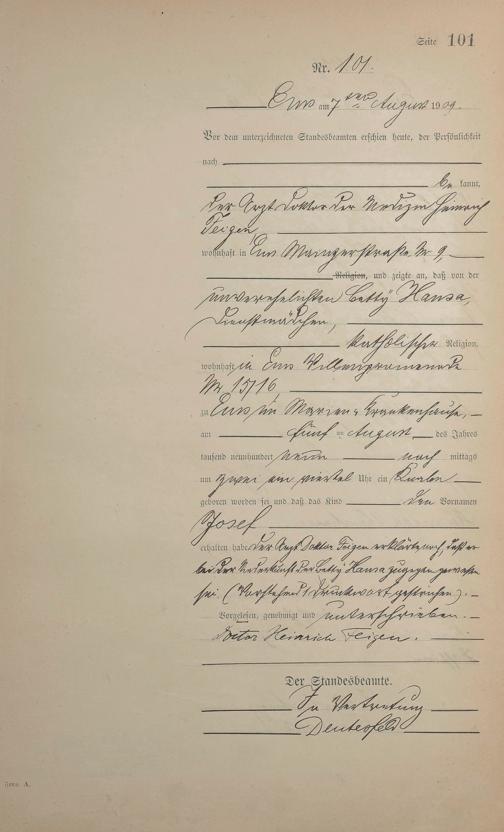 Seite 101
Nr. 101.
Ems am 7ten August 1909.
Vor dem unterzeichneten Standesbeamten erschien heute, der Persönlichkeit
nach
be kannt,
der Arzt Doktor der Medizin Heinrich
Feigen,
wohnhaft in Ems Mainzerstraße Nr 9,
Religion, und zeigte an, daß von der
unverehelichten Betty Hansa,
Dienstmädchen,
katholischer Religion,
wohnhaft in Ems Villenpromenade
Nr 15/16
zu Ems im Marien-Krankenhause,
am fünf ten August des Jahres
tausend neunhundert neun nach mittags
um zwei ein viertel Uhr ein Knabe
geboren worden sei und daß das Kind den Vornamen
Josef
erhalten habe. Der Arzt Doktor Feigen erklärte noch, daß er
bei der Niederkunft der Betty Hansa zugegen gewesen
sei. (Vorstehend 1 Druckwort gestrichen).
Vorgelesen, genehmigt und unterschrieben.
Doctor Heinrich Feigen.
Der Standesbeamte.
In Vertretung
A.